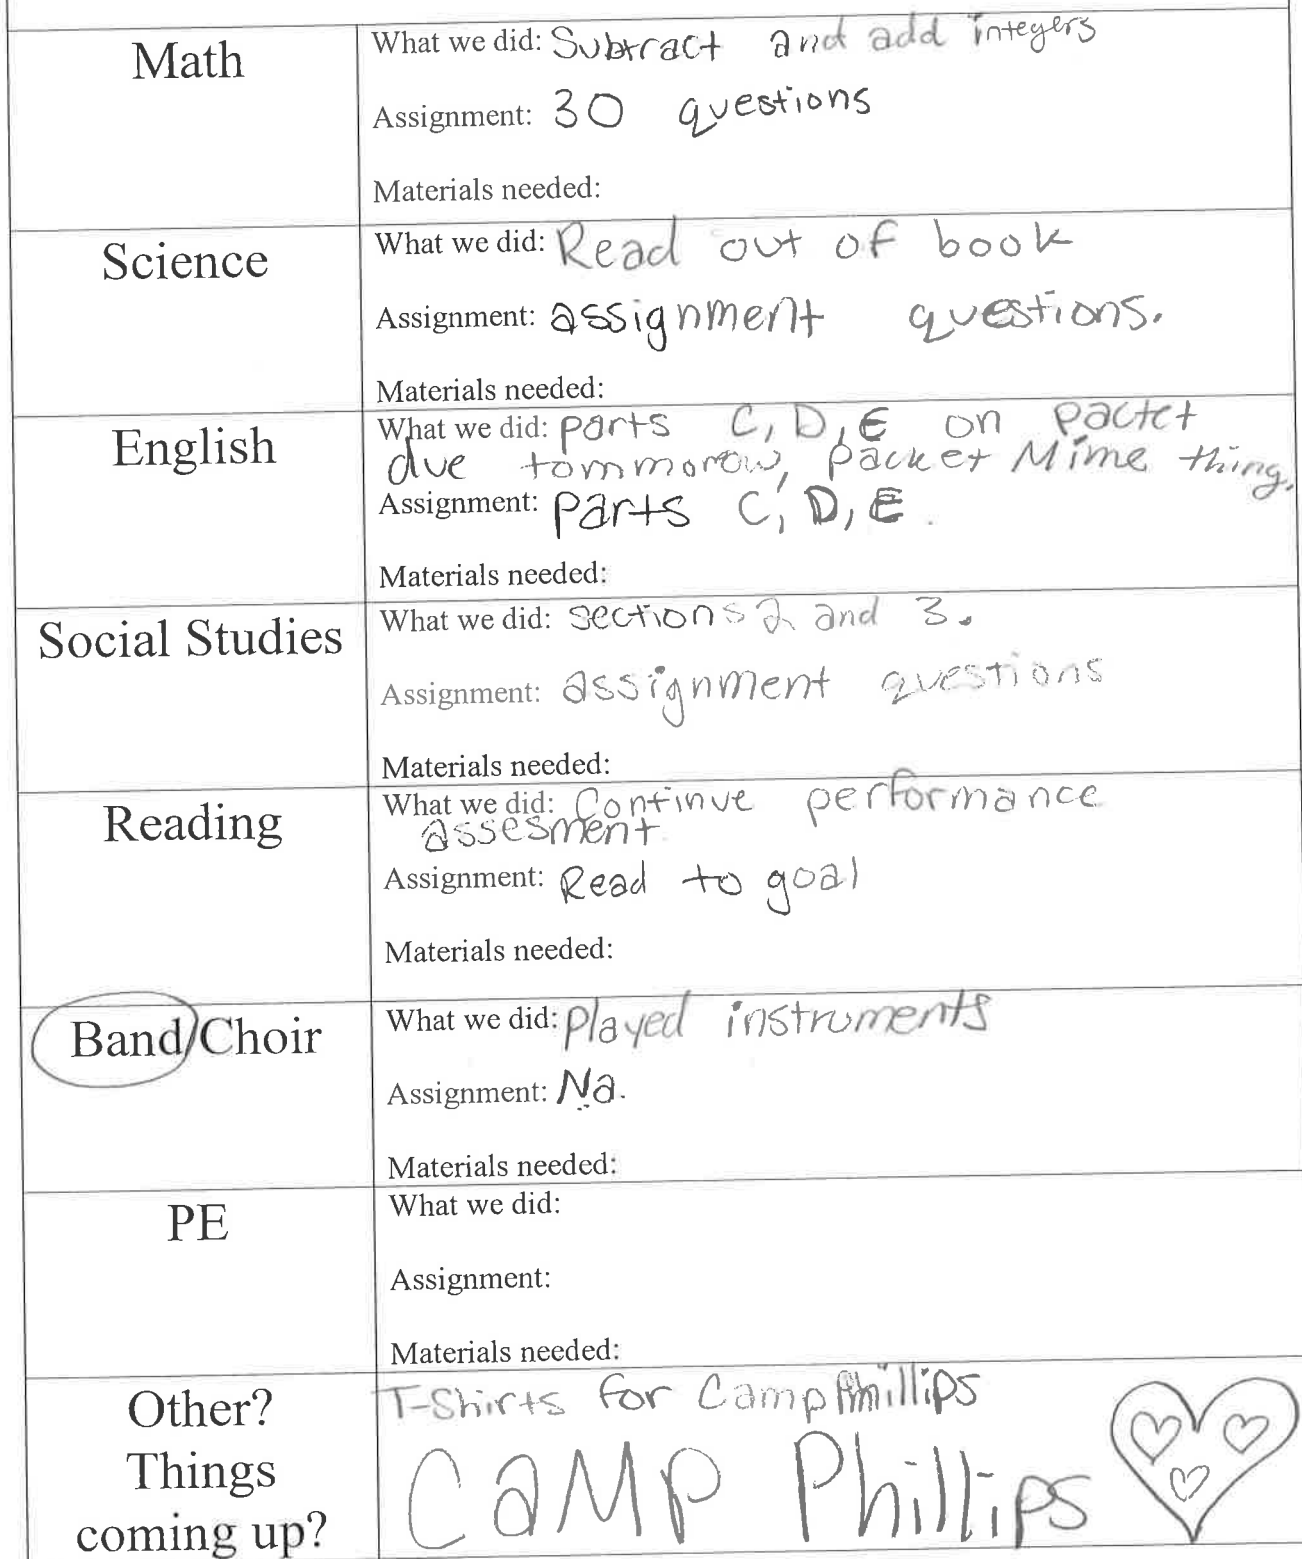 Math
What we did: Subtract and add integers
Assignment: 30 questions
Materials needed:
Science
What we did: Read out of book
Assignment: assignment questions.
Materials needed:
English
What we did: parts C, D, E on packet
due tommorow, packet Mime thing.
Assignment: parts C, D, E.
Materials needed:
Social Studies
What we did: sections 2 and 3.
Assignment: assignment questions
Materials needed:
Reading
What we did: Continue performance
assesment
Assignment: Read to goal
Materials needed:
Band/Choir
What we did: Played instruments
Assignment: Na.
Materials needed:
PE
What we did:
Assignment:
Materials needed:
Other?
Things
coming up?
T-Shirts for Camp Phillips
CaMP Phillips